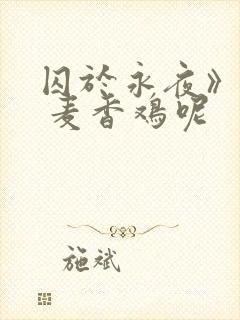 囚於永夜》
麦香鸡呢
施斌